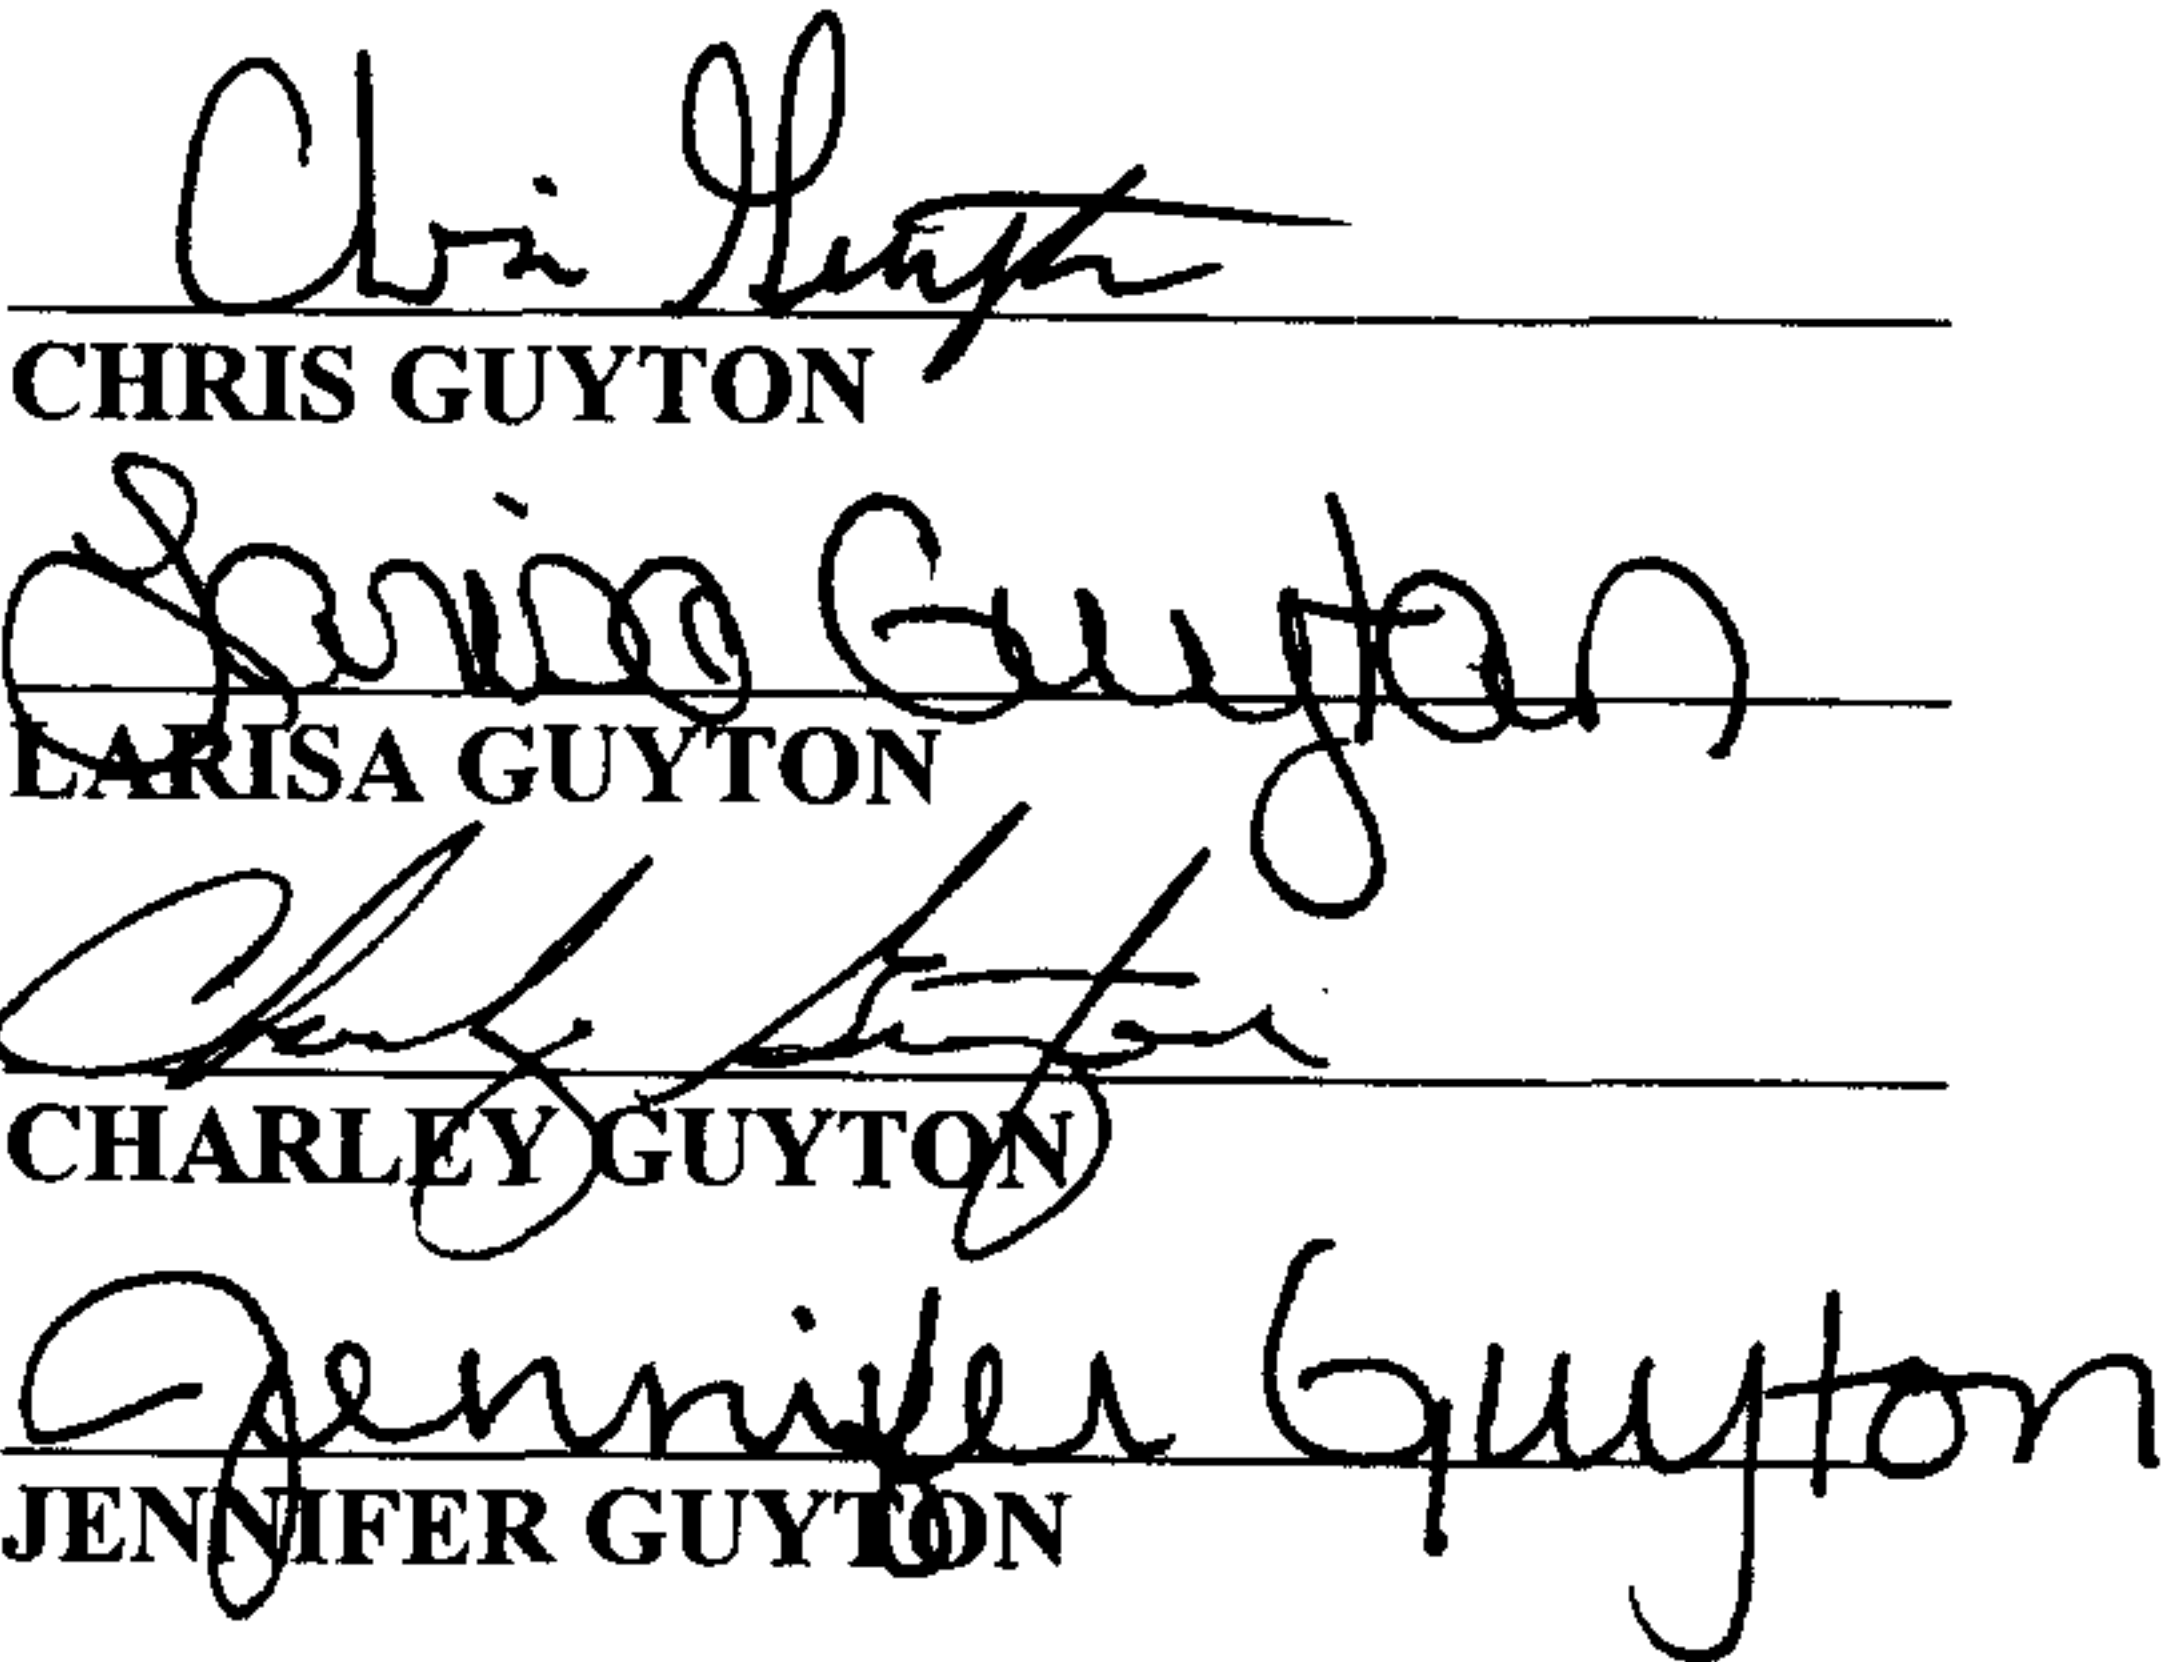 Chris Guyton
CHRIS GUYTON
Larisa Guyton
LARISA GUYTON
Charley Guyton
CHARLEY GUYTON
Jennifer Guyton
JENNIFER GUYTON